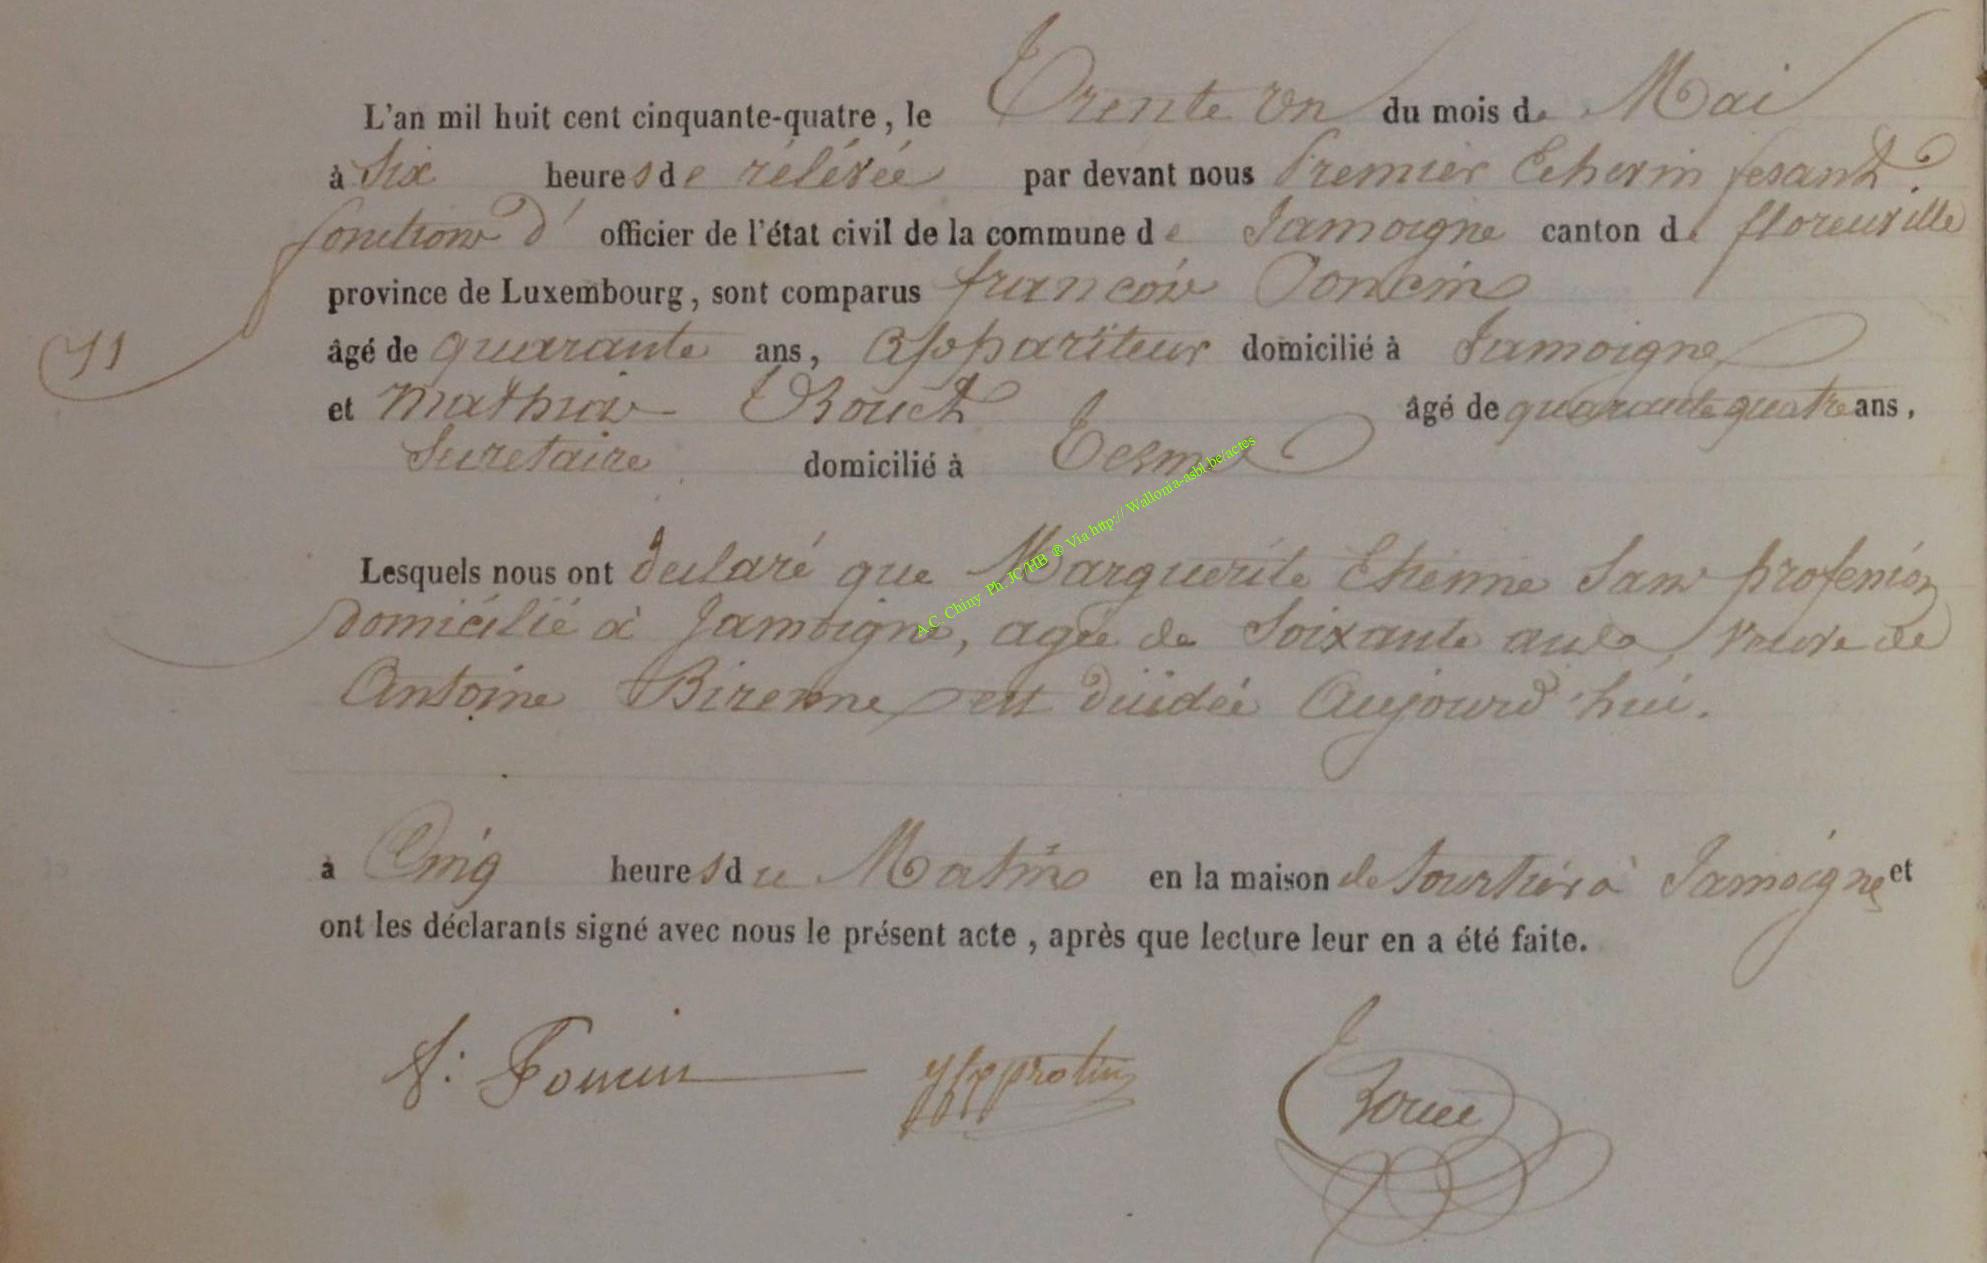 L'an mil huit cent cinquante-quatre, le Trente un du mois de Mai
à Six heures de rélévée par devant nous Premier Echevin fesant
fonctions d' officier de l'état civil de la commune de Jamoigne canton de florenville
province de Luxembourg, sont comparus françois Poncin
11
âgé de quarante ans, Appariteur domicilié à Jamoigne
et Mathias âgé de quarante quatre ans,
Secretaire domicilié à Termes
A.C. Chiny Ph. JC/HB ® Via http:// Wallonia-asbl.be/actes
Lesquels nous ont declaré que Marguerite Etienne Sans profession
domicilié à Jamoigne, agée de Soixante ans, veuve de
Antoine est décédée Aujourd'hui.
à Cinq heures du Matin en la maison de à Jamoigne et
ont les déclarants signé avec nous le présent acte, après que lecture leur en a été faite.
f: Poncin